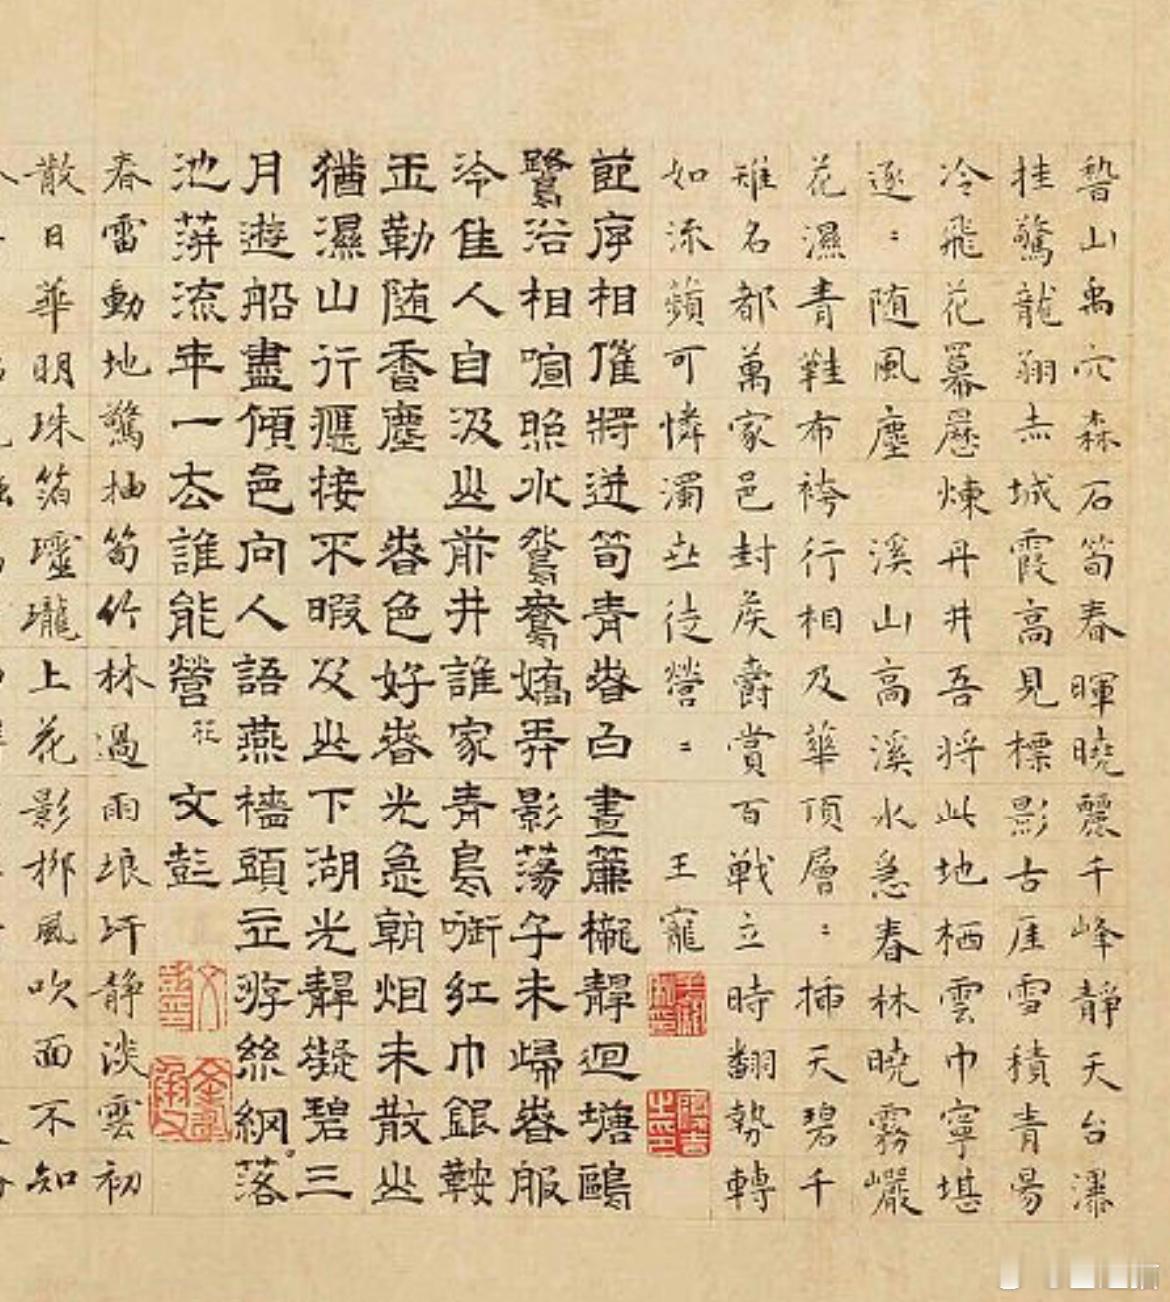 嵇山禹穴森石筍春暉曉麗千峰靜天台瀑
挂驚龍翔赤城霞高見標影古厓雪積青昜
冷飛花冪歷煉丹井吾將此地栖雲巾寧堪
逐〻随風塵　溪山高溪水急春林曉霧巖
花濕青鞋布袴行相及華頂層〻揷天碧千
雉名都萬家邑封矦爵賞百戰立時翻勢轉
如流蘋可憐濁世徒營〻　王寵
莭序相催將迸筍青春白晝簾櫳靜迴塘鷗
鷺浴相喧照水鴛鴦嬌弄影蕩子未歸春服
冷佳人自汲山前井誰家青鳥銜紅巾銀鞍
玉勒随香塵　春色好春光急朝烟未散山
猶濕山行應接不暇及山下湖光靜凝碧三
月遊船盡傾邑向人語燕檣頭立游絲綱落
池萍流年一去誰能營　文彭
春雷動地驚抽筍竹林過雨琅玕靜淡雲初
散日華明珠箔瓏瓏上花影栁風吹面不知